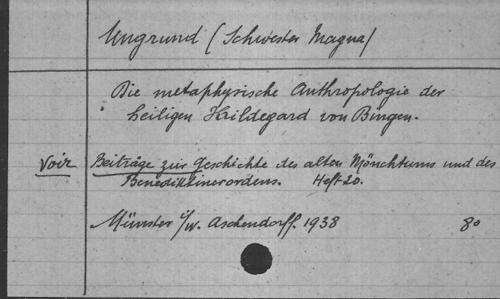 Ungrund (Schwester Magna)
Die metaphysische Anthropologie der
heiligen Hildegard von Bingen.
Voir Beiträge zur Geschichte des alten Mönchtums und des
Benediktinerordens. Heft 20.
Münster i/w. Aschendorff. 1938 8°